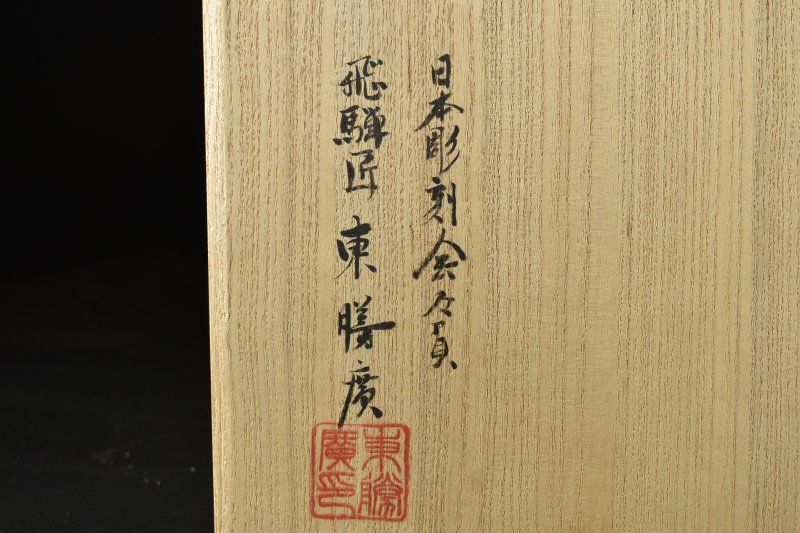 日本彫刻会々員
飛騨匠 東勝廣
東勝廣印